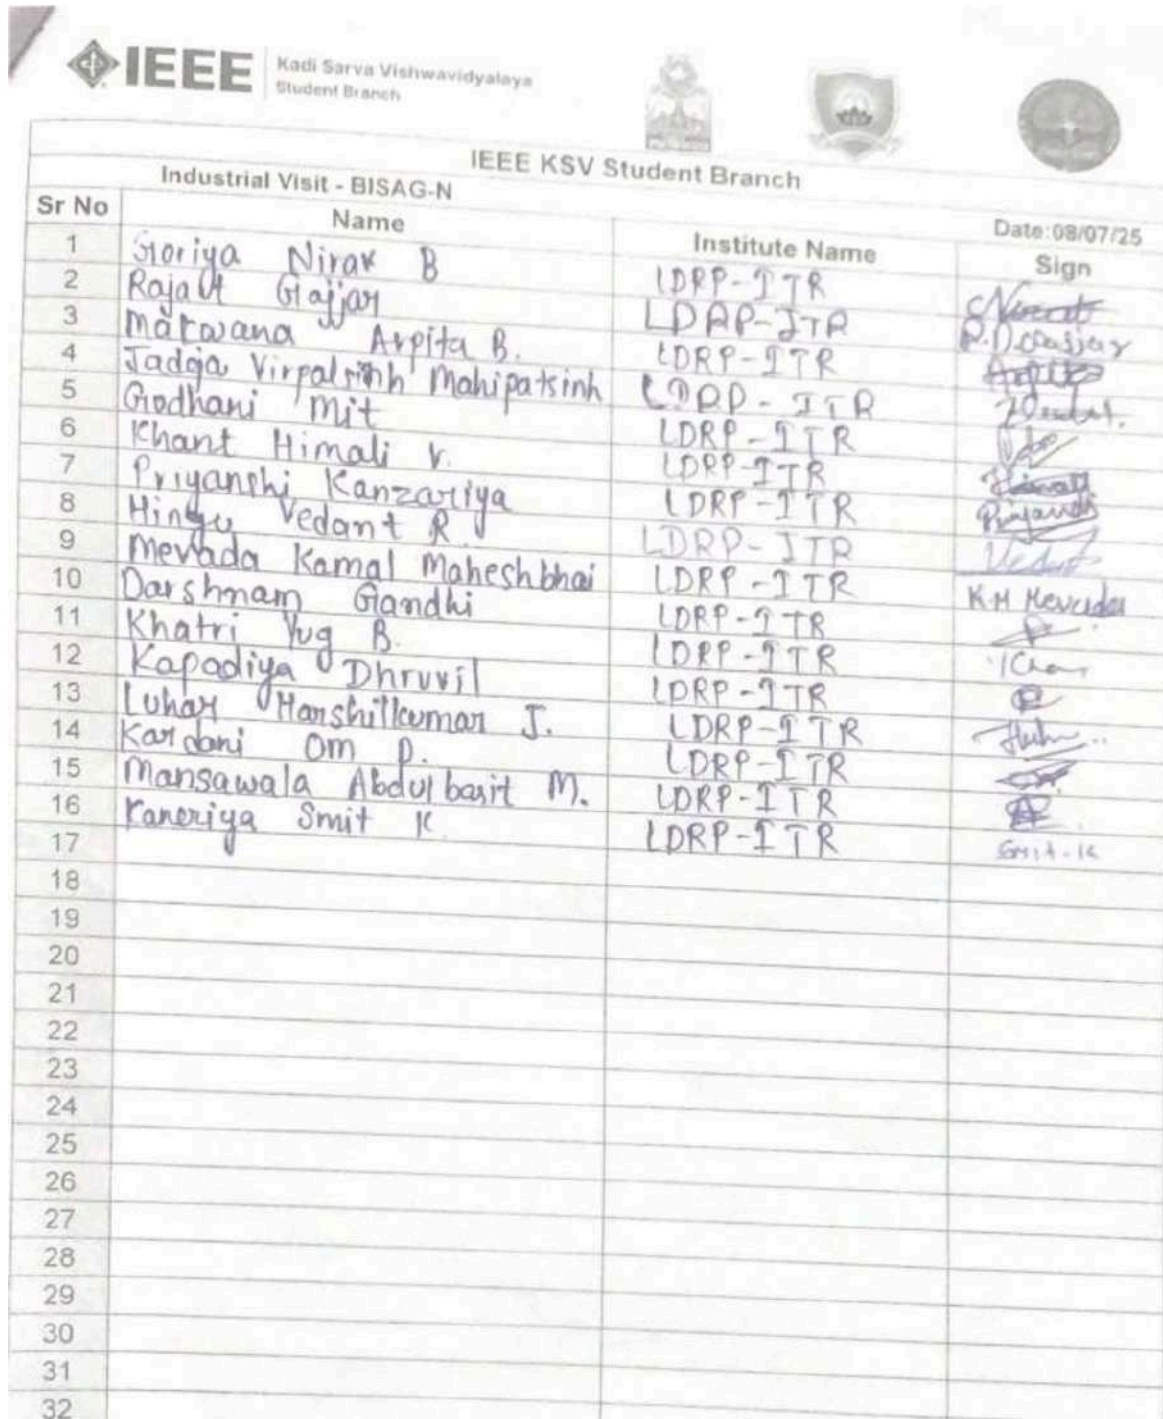 IEEE Kadi Sarva Vishwavidyalaya
Student Branch
IEEE KSV Student Branch
Industrial Visit - BISAG-N Date:08/07/25
Sr No Name Institute Name Sign
1 Goriya Nirav B LDRP-ITR
2 Rajavi Gajjar LDRP-ITR
3 Makwana Arpita B. LDRP-ITR
4 Jadeja Virpalsinh Mahipatsinh LDRP-ITR
5 Godhani Mit LDRP-ITR
6 Khant Himali V. LDRP-ITR
7 Priyanshi Kanzariya LDRP-ITR Priyanshi
8 Hingu Vedant R. LDRP-ITR Vedant
9 Mevada Kamal Maheshbhai LDRP-ITR K.M Mevada
10 Darshnam Gandhi LDRP-ITR
11 Khatri Yug B. LDRP-ITR
12 Kapadiya Dhruvil LDRP-ITR
13 Luhar Harshilkumar J. LDRP-ITR
14 Kardani Om P. LDRP-ITR
15 Mansawala Abdulbasit M. LDRP-ITR
16 Kaneriya Smit K LDRP-ITR Smit-K
17
18
19
20
21
22
23
24
25
26
27
28
29
30
31
32